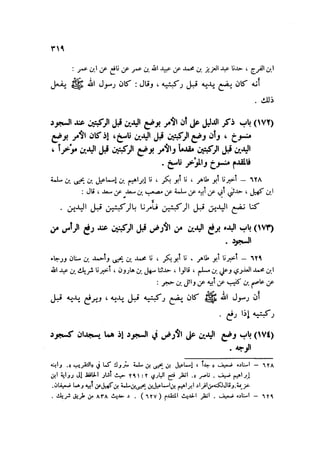 ٣١٩
ابن الفرج ، حدثنا عبد العزيز بن محمد عن عبيد الله بن عمر عن نافع عن ابن عمر :
أنه كان يضع يديه قبل ركبتيه ، وقال : كان رسول الله ﷺ يفعل
ذلك .
(١٧٢) باب ذكر الدليل على أن الأمر بوضع اليدين قبل الركبتين عند السجود
منسوخ ، وأن وضع الركبتين قبل اليدين ناسخ، إذ كان الأمر بوضع
اليدين قبل الركبتين مقدماً والأمر بوضع الركبتين قبل اليدين مؤخراً ،
فالمقدم منسوخ والمؤخر ناسخ .
٦٢٨ – أخبرنا أبو طاهر ، نا أبو بكر ، نا إبراهيم بن إسماعيل بن يحيى بن سلمة بن
كهيل ، حدثني أبي عن أبيه عن سلمة عن مصعب بن سعد عن سعد ، قال :
كنا نضع اليدين قبل الركبتين فأمرنا بالركبتين قبل اليدين .
(١٧٣) باب البدء برفع اليدين من الأرض قبل الركبتين عند رفع الرأس من
السجود .
٦٢٩ – أخبرنا أبو طاهر ، نا أبو بكر ، نا محمد بن يحيى وأحمد بن سنان ورجاء
ابن محمد العذري وعلي بن مسلم ، قالوا ، حدثنا يزيد بن هارون ، أخبرنا شريك بن عبد الله
عن عاصم بن كليب عن أبيه عن وائل بن حجر :
أن رسول الله ﷺ كان يضع ركبتيه قبل يديه ، ويرفع يديه قبل
ركبتيه إذا رفع .
(١٧٤) باب وضع اليدين على الأرض في السجود إذ هما يسجدان كسجود
الوجه .
٦٢٨ – اسناده ضعيف جداً ، إسماعيل بن يحيى بن سلمة متروك كما في «التقريب». وابنه
إبراهيم ضعيف . ناصر . انظر فتح الباري ٢ : ٢٩١ حيث أشار الحافظ إلى رواية ابن
٦٢٩ – اسناده ضعيف . انظر الحديث المتقدم ( ٦٢٧ ) . د حديث ٨٣٨ من طريق شريك .